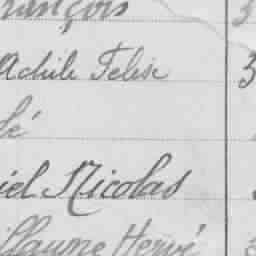 rançois 3
Achile Felix 3
lé
iel Nicolas
illaume Hervé 3